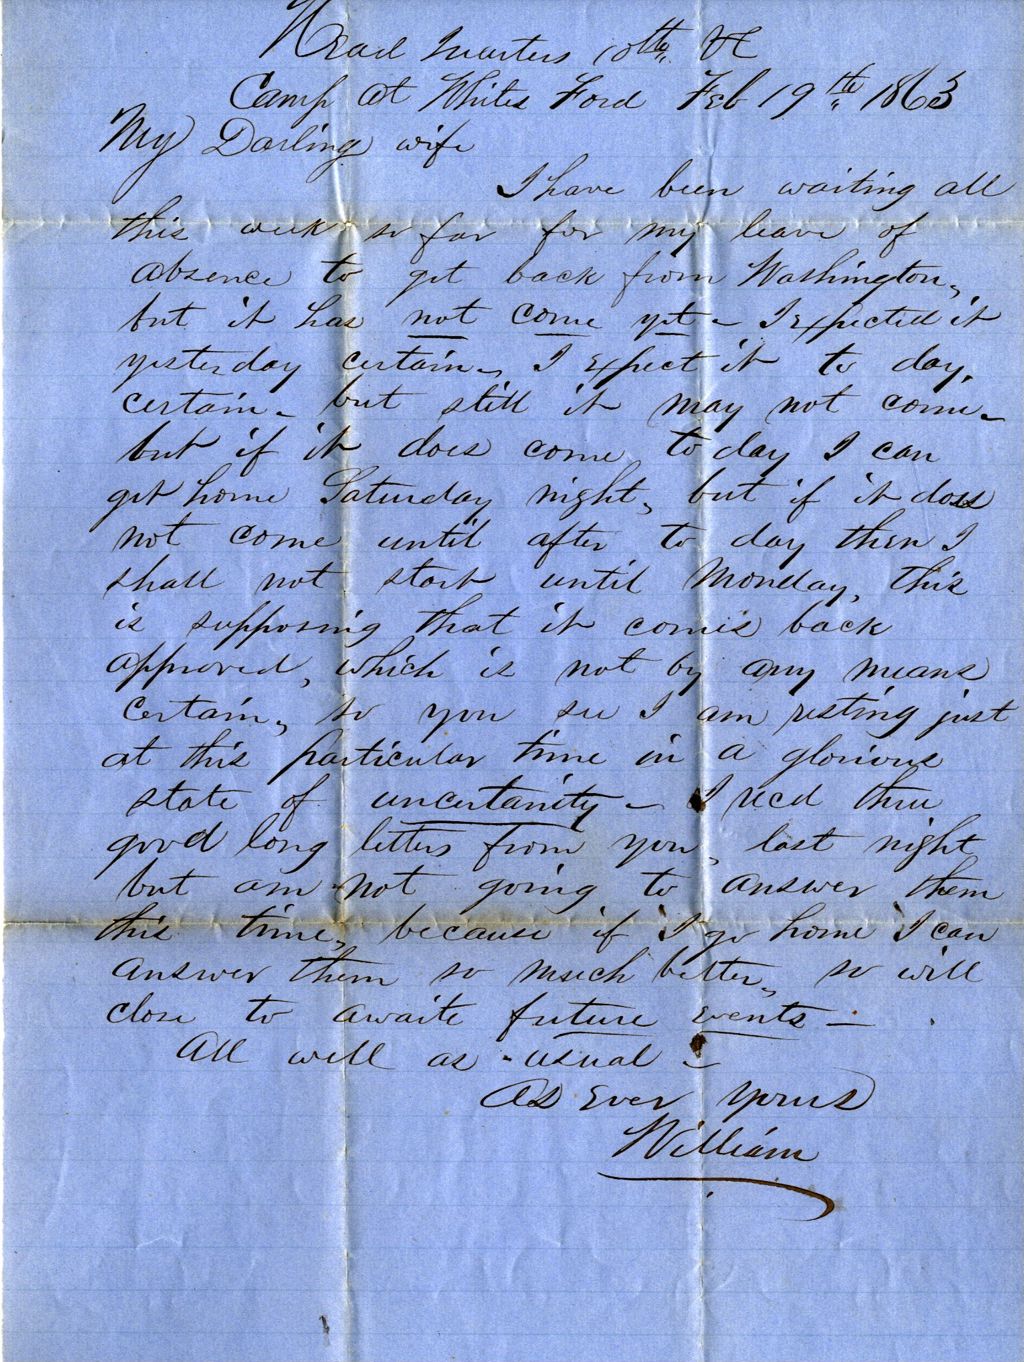 Head Quarters 10th Vt
Camp at Whites Ford Feb 19th 1863
My Darling wife
I have been waiting all
this week so far for my leave of
absence to get back from Washington,
but it has not come yet - I Expected it
yesterday certain, I Expect it to day,
certain - but still it may not come -
but if it does come to day I can
get home Saturday night, but if it does
not come until after to day then I
shall not start until Monday, this
is supposing that it comes back
approved, which is not by any means
certain, so you see I am resting just
at this particular time in a glorious
state of uncertanity - I recd three
good long letters from you, last night
but am not going to answer them
this time, because if I go home I can
answer them so much better, so will
close to awaite future events -
All well as usual -
As Ever Yours
William